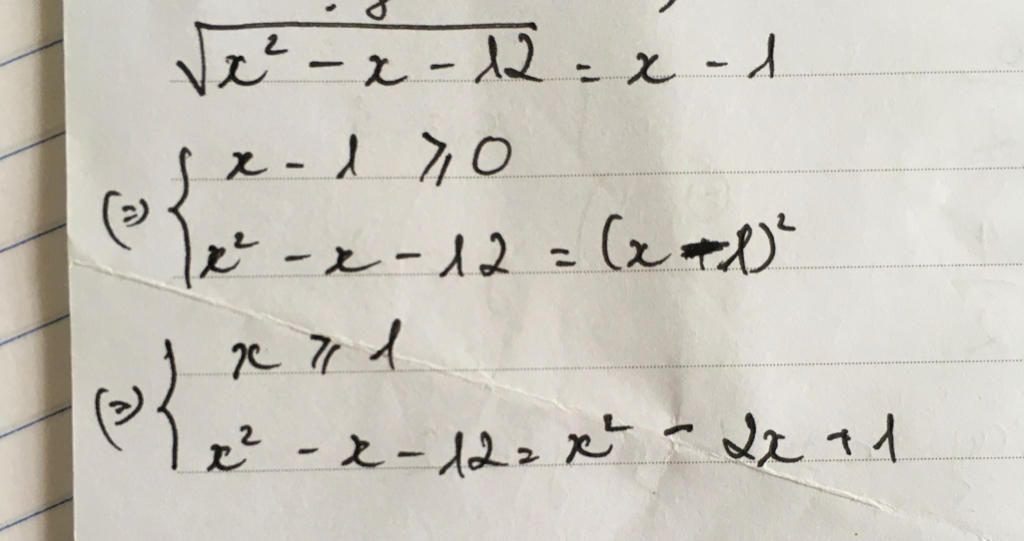 √(x² - x - 12) = x - 1
(=) { x - 1 ⩾ 0
x² - x - 12 = (x - 1)²
(=) { x ⩾ 1
x² - x - 12 = x² - 2x + 1